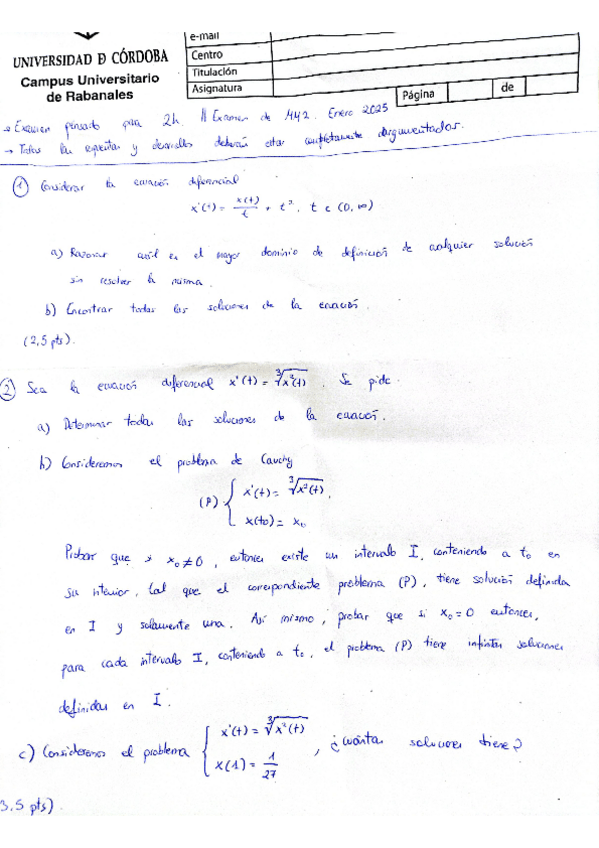 UNIVERSIDAD Ð CÓRDOBA
Campus Universitario
de Rabanales
e-mail
Centro
Titulación
Asignatura
Página
de
→ Examen pensado para 2h. // Examen de MM2. Enero 2025
→ Todas las respuestas y desarrollos deberán estar completamente argumentados.
① Considerar la ecuación diferencial
x'(t) = x(t)/t + t², t ∈ (0, ∞)
a) Razonar cuál es el mayor dominio de definición de cualquier solución
sin resolver la misma.
b) Encontrar todas las soluciones de la ecuación.
(2,5 pts).
② Sea la ecuación diferencial x'(t) = ∛x²(t). Se pide.
a) Determinar todas las soluciones de la ecuación.
b) Consideremos el problema de Cauchy
(P) { x'(t) = ∛x²(t),
x(t₀) = x₀
Probar que si x₀ ≠ 0, entonces existe un intervalo I, conteniendo a t₀ en
su interior, tal que el correspondiente problema (P), tiene solución definida
en I y solamente una. Así mismo, probar que si x₀ = 0 entonces,
para cada intervalo I, conteniendo a t₀, el problema (P) tiene infinitas soluciones
definidas en I.
c) Consideremos el problema { x'(t) = ∛x²(t)
x(1) = 1/27
, ¿cuántas soluciones tiene?
3,5 pts)